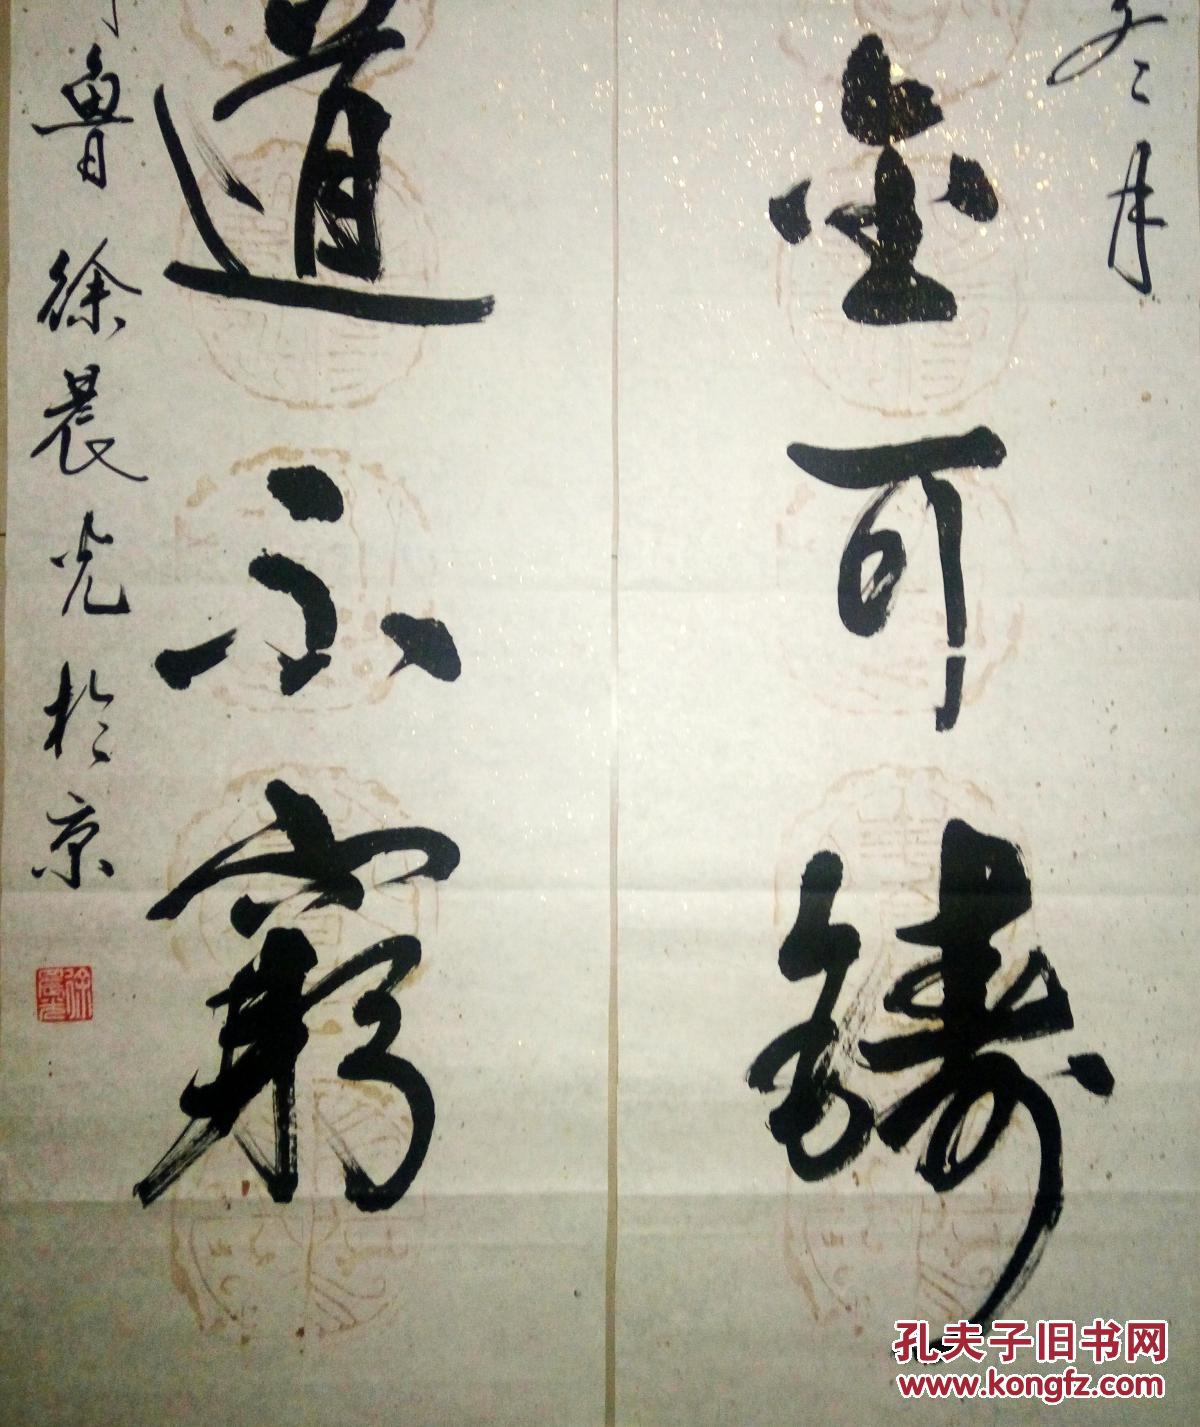 冬月
金可鑄
道不窮
魯徐晨光於京
徐晨光
孔夫子旧书网
www.kongfz.com